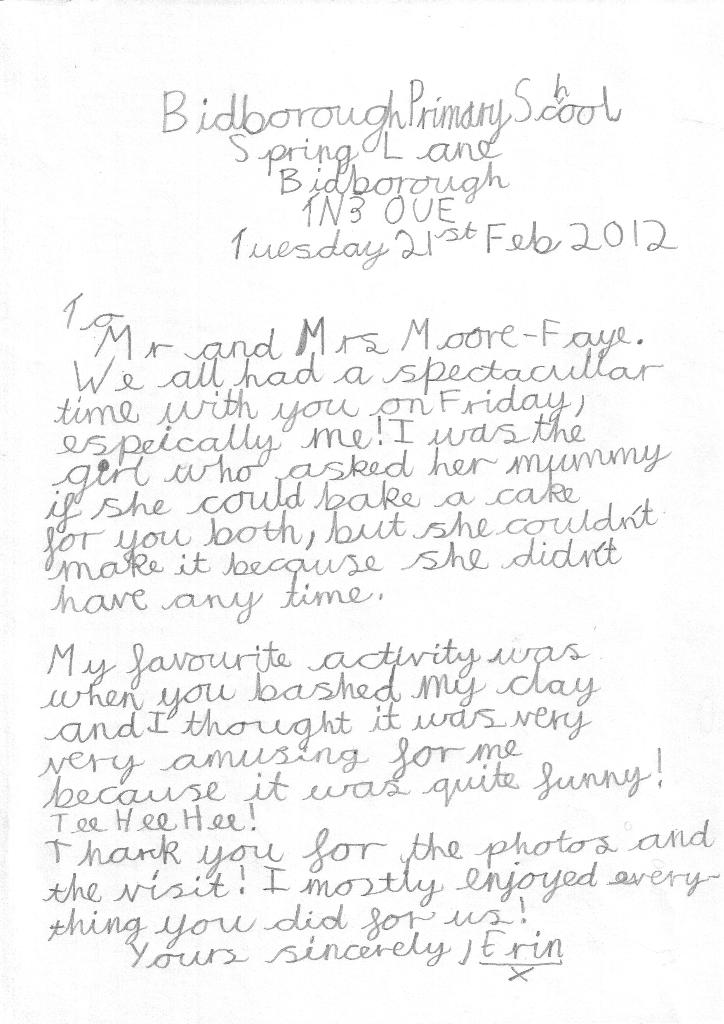 Bidborough Primary School
Spring Lane
Bidborough
TN3 0UE
Tuesday 21st Feb 2012
To
Mr and Mrs Moore-Faye.
We all had a spectacullar
time with you on Friday,
espeically me! I was the
girl who asked her mummy
if she could bake a cake
for you both, but she couldn't
make it because she didn't
have any time.
My favourite activity was
when you bashed my clay
and I thought it was very
very amusing for me
because it was quite funny!
Tee Hee Hee!
Thank you for the photos and
the visit! I mostly enjoyed every-
thing you did for us!
Yours sincerely, Erin
x